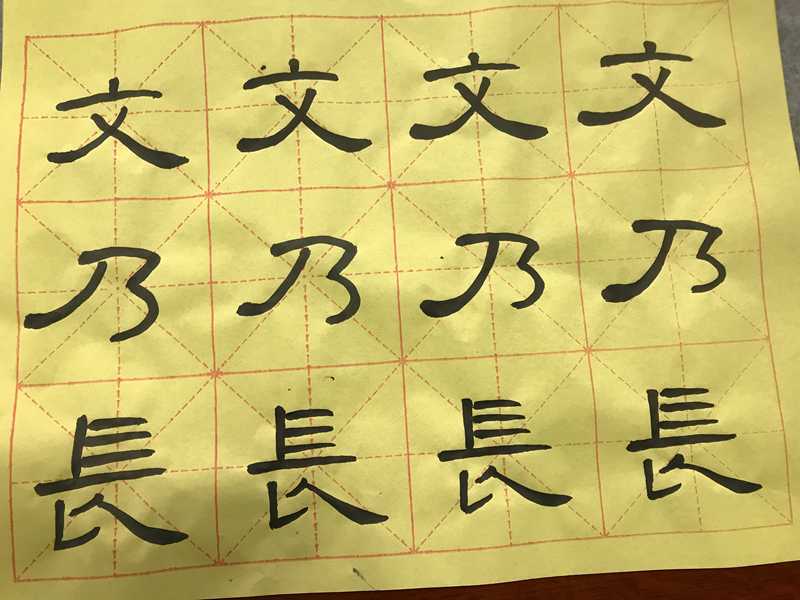 文文文文
乃乃乃乃
長長長長